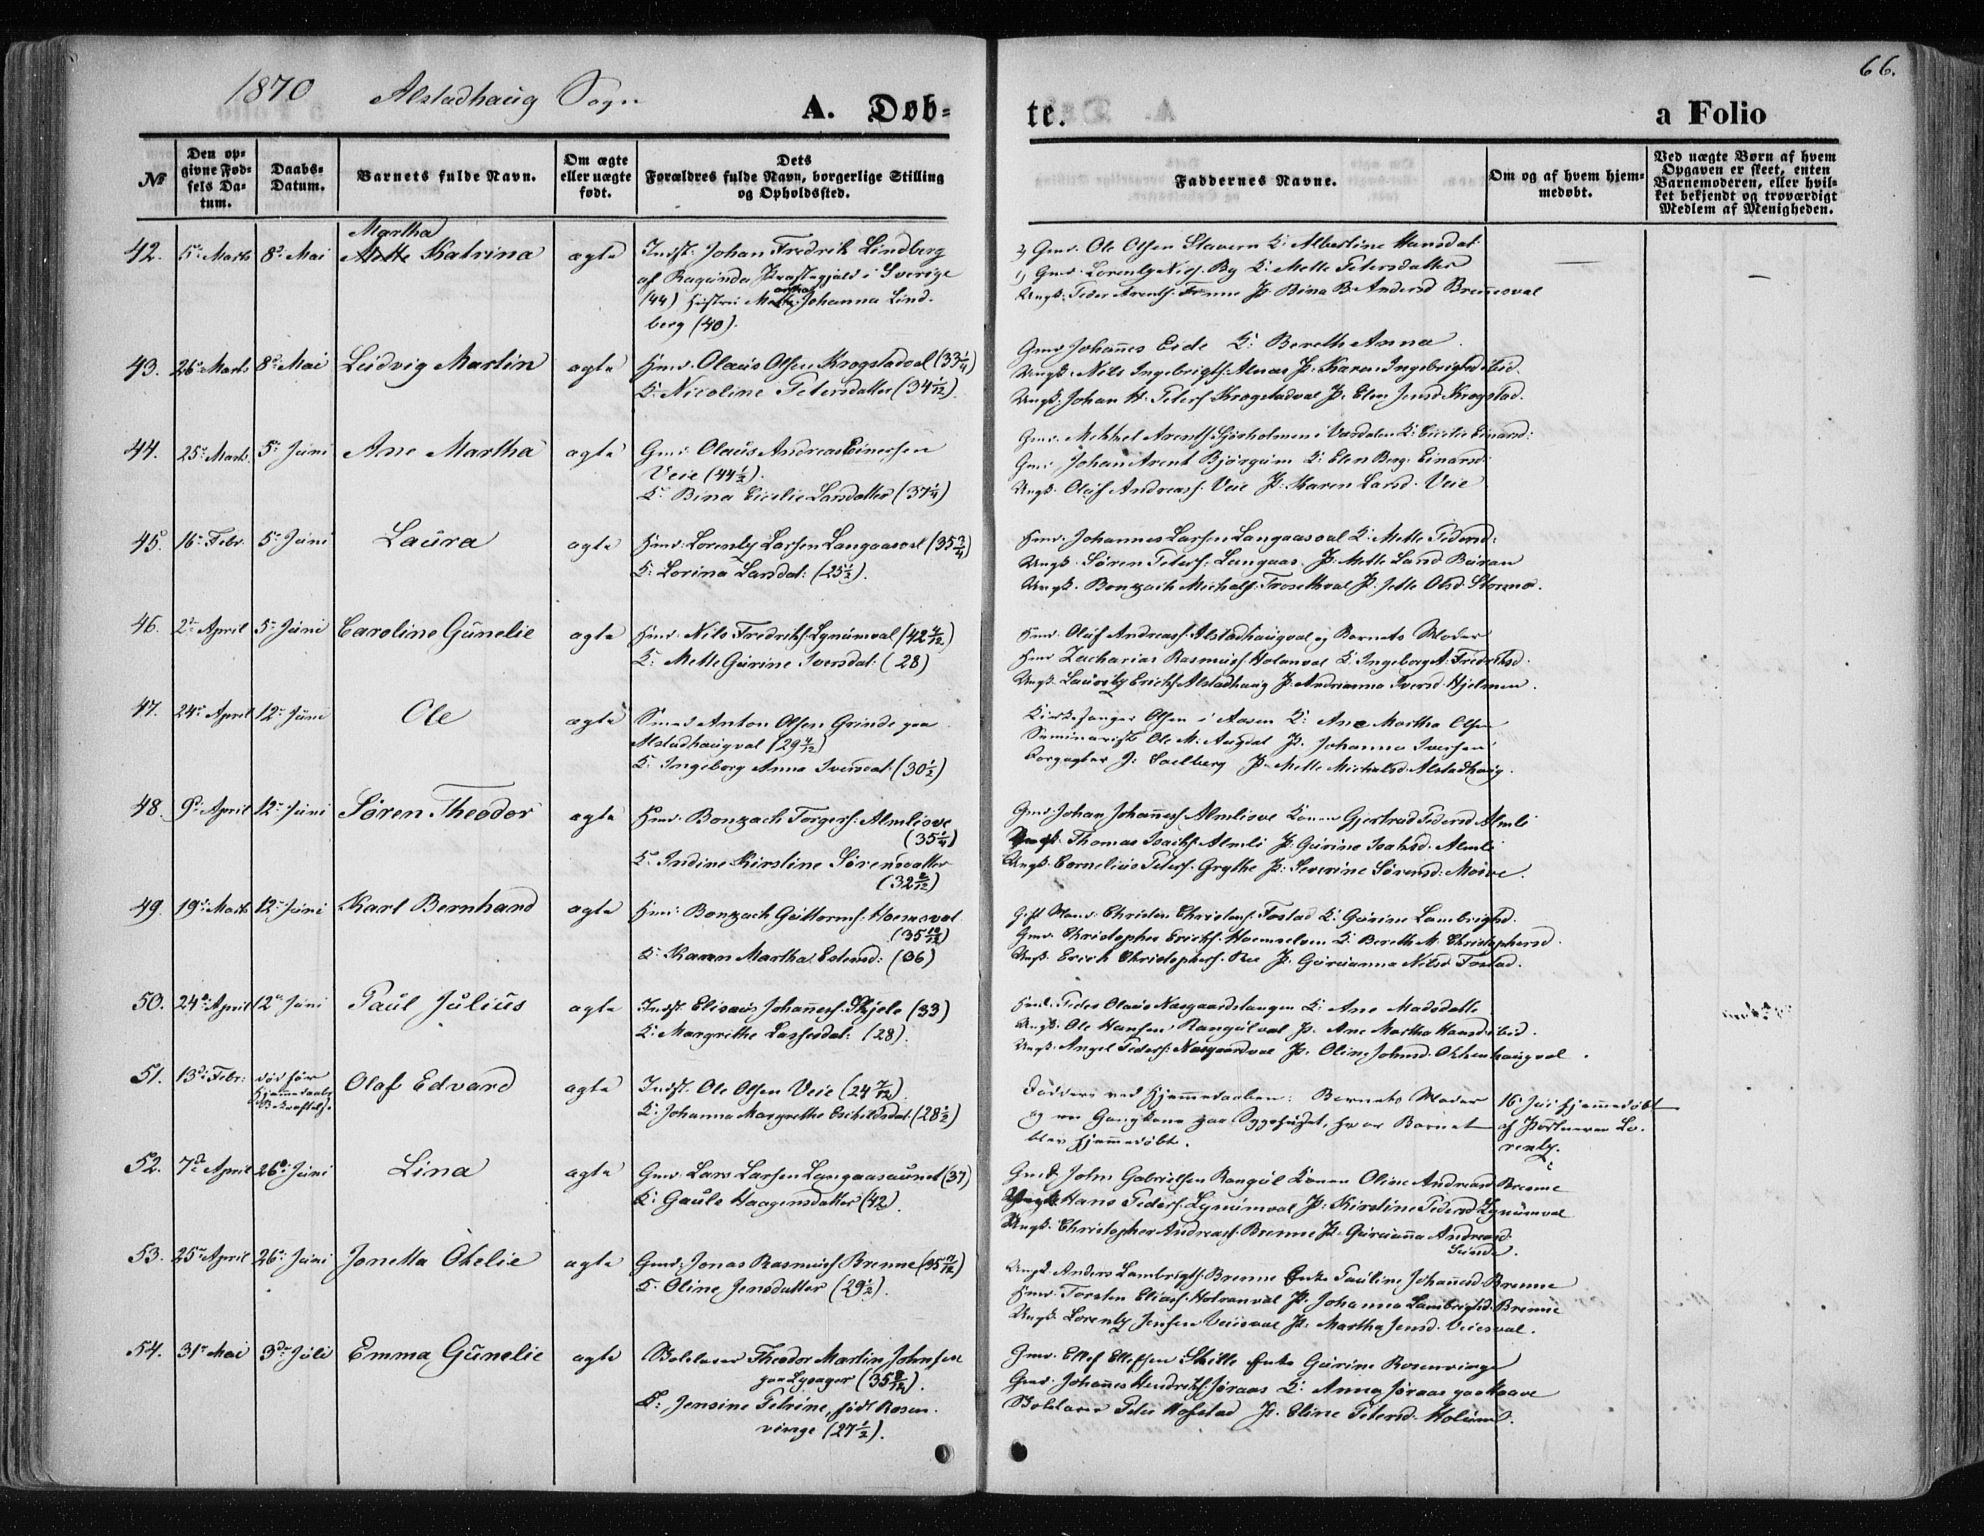 1870 Alstadhaug Sogn
A. Døb-
te.
a Folio
66.
№
Den op-
givne Fød-
sels Da-
tum.
Daabs-
Datum.
Barnets fulde Navn.
Om ægte
eller uægte
født.
Dets
Forældres fulde Navn, borgerlige Stilling
og Opholdssted.
Faddernes Navne.
Om og af hvem hjem-
medøbt.
Ved uægte Børn af hvem
Opgaven er skeet, enten
Barnemoderen, eller hvil-
ket bekjendt og troværdigt
Medlem af Menigheden.
Martha
42. 5te Marts 8de Mai Katrina ægte Indst. Johan Fredrik Lindberg
af Ragunda Præstegjæld i Sverige
(44) Hustru Johanna Lind-
berg (40).
2) Gmd. Ole Olsen Stavern K. Albertine Hansdat.
1) Gmd. Lorents Niels. By K. Mette Petersdatter
Ungk. Peder Arents. P. Bina B. Andersd
43. 26de Marts 8de Mai Ludvig Martin ægte Hmd. Olaus Olsen Krogstadval (33 1/4)
K. Nicoline Petersdatter (34 1/12)
Gmd Johannes Eide K. Bereth Anna.
Ungk. Nils Ingebrigts. P. Karen Ingebrigtsd ibid.
Ungk. Johan H. Peters. Krogstadval P. Elen Jensd. Krogstad.
44. 25de Marts 5te Juni Ane Martha ægte Gmd. Olaus Andreas Einersen
Veie (44 1/2)
K. Bina Cecilie Larsdatter (37 1/4)
Gmd. Mikkel Arents. i Værdalen K. Cicilie Einarsd:
Gmd. Johan Arent Bjørgum K. Elen Berg. Einarsd:
Ungk. Oluf Andreass. Veie P. Karen Larsd. Veie
45. 16de Febr. 5te Juni Laura ægte Hmd. Lorents Larsen Langaasval (35 3/4)
K. Lorina Larsdat. (25 1/2).
Hmd. Johannes Larsen Langaasval K. Mette Pedersd:
Ungk. Søren Peters. Langaas. P. Mette Larsd Buran
Ungk. Bonzach Michals. P. Jette Olsd.
46. 2den April 5te Juni Caroline Gunelie ægte Hmd. Nils Fredriks. Lynumval (42 4/12)
K. Mette Gurine Iversdat. (28)
Hmd. Oluf Andreass. Alstadhaugval og Barnets Moder
Hmd Zacharias Rasmus. Holanval K. Ingeborg A. Fredriksd.
Ungk. Laurits Ericks. Alstadhaug P. Andrianna Iversd. Hjelmen.
47. 24de April 12te Juni Ole ægte Smed Anton Olsen Grinde paa
Alstadhaugval (29 4/12)
K. Ingeborg Anna Iversdat. (30 1/2)
Kirkesanger Olsen i Aasen K. Ane Martha Olsen
Seminarist Ole M. Augdal P. Johanna Iversen
Forpagter J. Saelberg P. Mette Michelsd. Alstadhaug.
48. 9de April 12te Juni Søren Theodor ægte Hmd. Bonzach Torgers. Almlisve
(35 1/4)
K. Indine Kirstine Sørensdatter
(32 2/12)
Gmd Johan Johannes. Almlisve Konen Gjertrud Pedersd Almli
Ungk. Thomas Isachs. Almli P. Gurine Isaksd. Almli
Ungk. Cornelius Peters. Grythe P. Severine Sørensd.
49. 19de Marts 12te Juni Karl Bernhard ægte Hmd. Bonzach Guttorms. Hoemsval
(35 10/12)
K. Karen Martha Estensd. (36)
Gift Mand Christen Christens. Fostad K. Gurine Lambrigtsd.
Gmd. Christopher Ericks. K. Bereth M. Christophersd.
Ungk. Erich Christophers. P. Gurianna Nilsd. Fostad.
50. 24de April 12te Juni Paul Julius ægte Indst. Elisæus Johannes. Skjele (33)
K. Margrethe Lassesdat. (28)
Peder Olaus Næsgaardstangen K. Ane Madsdatte
Ungk. Ole Hansen Rangulval P. Ane Martha Hansd. ibid.
Ungk. Angel Peders. Næsgaardval P. Oline Johnsd. Okkenhaugval.
51. 13de Febr. død før
Hjemmedaabs
Bekræftelse Olaf Edvard ægte Indst. Ole Olsen Veie (24 7/12)
K. Johanna Margrethe Eschildsdat. (28 1/2)
Faddere ved Hjemmedaaben: Barnets Moder
og en Gangkone paa Sygehuset, hvor Barnet
blev hjemmedøbt.
16. Juni hjemmedøbt
af Portneren Lo-
rents.
52. 7de April 26de Juni Lina ægte Gmd. Lars Larsen Langaasaunet (37)
K. Gaule Haagensdatter (42).
Gmd. John Gabrielsen Rangul Konen Oline Andreasd Brenne
Ungk. Hans Peders. Lynumval P. Kirstine Pedersd Lynumval
Ungk. Christopher Andreas. Brenne P. Gurianna Andreasd.
Sunde.
53. 25de April 26de Juni Jonetta Otelie ægte Gmd. Jonas Rasmus. Brenne (35 11/12)
K. Oline Jensdatter (29 1/2).
Ungk. Anders Lambrigts. Brenne Enke Pauline Johannesd. Brenne
Hmd. Torsten Elias. Holvanval P. Johanna Lambrigtsd. Brenne
Ungk. Lorents Jensen Veiesval P. Martha Jensd. Veiesval.
54. 31te Mai 3die Juli Emma Gunelie ægte Boelslaver Theodor Martin Johnsen
paa Lysager (35 8/12).
K. Jensine Petrine, født Rosen-
vinge (27 1/2).
Gmd. Ellef Ellefsen Skille Enke Gurine Rosenvinge
Gmd. Johannes Hendriks. Joraas K. Anna Joraas paa Haave
Peter Hofstad P. Eline Petersd. Holum.